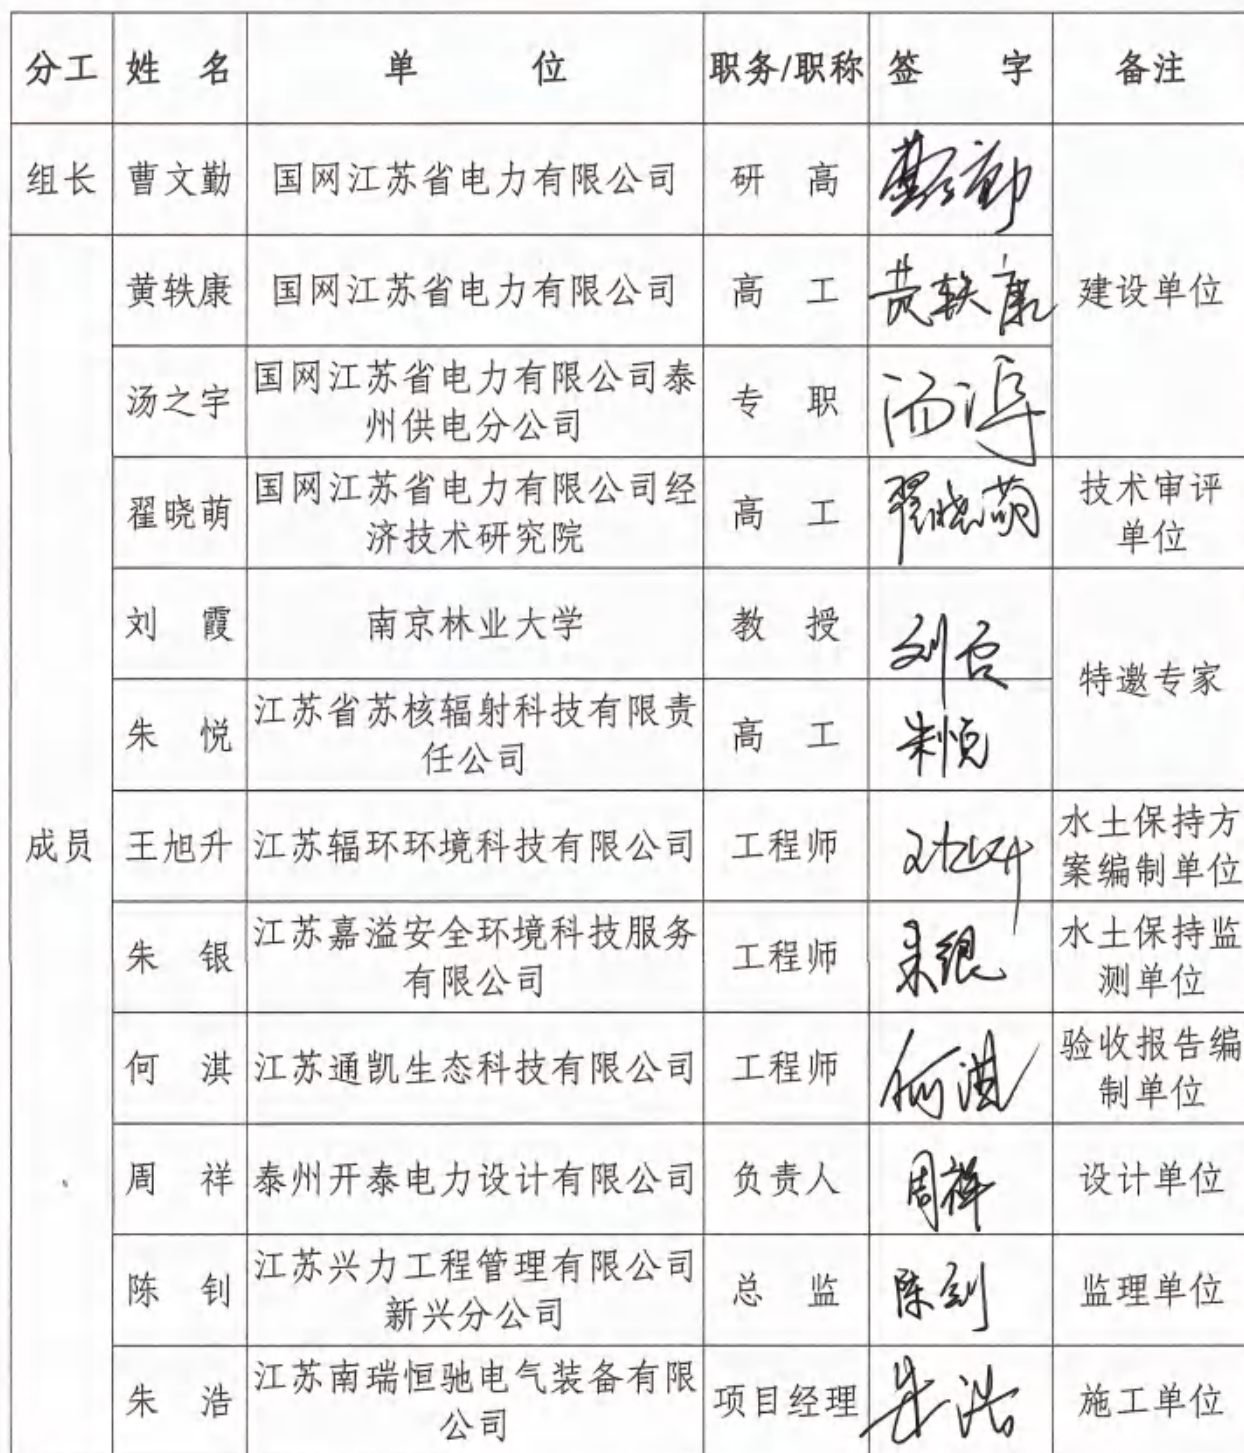 分工 姓 名 单 位 职务/职称 签 字 备注
组长 曹文勤 国网江苏省电力有限公司 研 高 曹文勤
黄轶康 国网江苏省电力有限公司 高 工 黄轶康 建设单位
汤之宇 国网江苏省电力有限公司泰
州供电分公司 专 职
翟晓萌 国网江苏省电力有限公司经
济技术研究院 高 工 翟晓萌 技术审评
单位
刘 霞 南京林业大学 教 授
特邀专家
朱 悦 江苏省苏核辐射科技有限责
任公司 高 工 朱悦
成员 王旭升 江苏辐环环境科技有限公司 工程师 王旭升 水土保持方
案编制单位
朱 银 江苏嘉溢安全环境科技服务
有限公司 工程师 朱银 水土保持监
测单位
何 淇 江苏通凯生态科技有限公司 工程师 何淇 验收报告编
制单位
周 祥 泰州开泰电力设计有限公司 负责人 周祥 设计单位
陈 钊 江苏兴力工程管理有限公司
新兴分公司 总 监 陈钊 监理单位
朱 浩 江苏南瑞恒驰电气装备有限
公司 项目经理 朱浩 施工单位